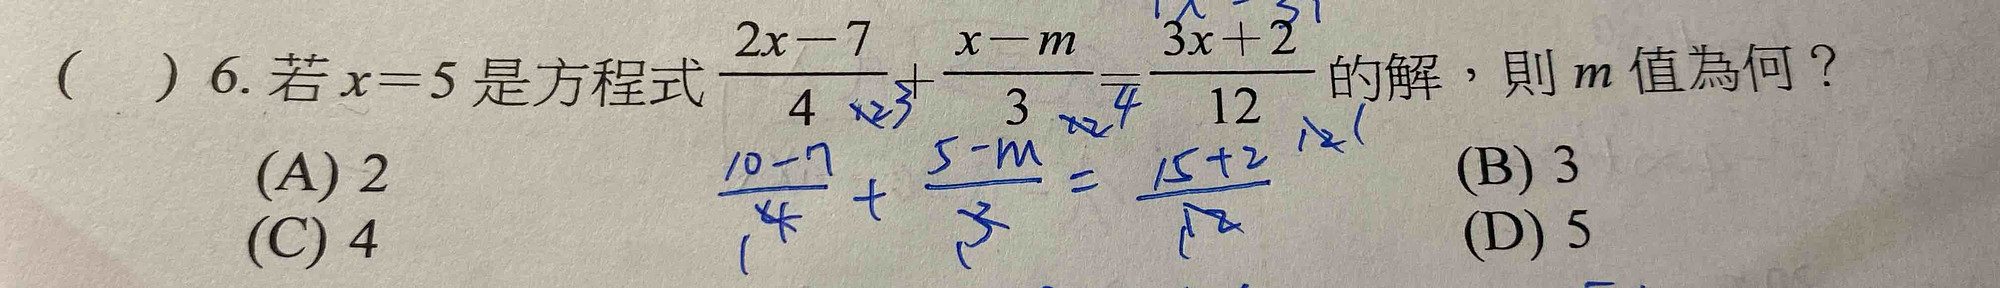 (　) 6. 若 x=5 是方程式 \frac{2x-7}{4}+\frac{x-m}{3}=\frac{3x+2}{12} 的解，則 m 值為何？
×3 ×4 ×1
(A) 2 (B) 3
\frac{10-7}{4} + \frac{5-m}{3} = \frac{15+2}{12}
(C) 4 (D) 5